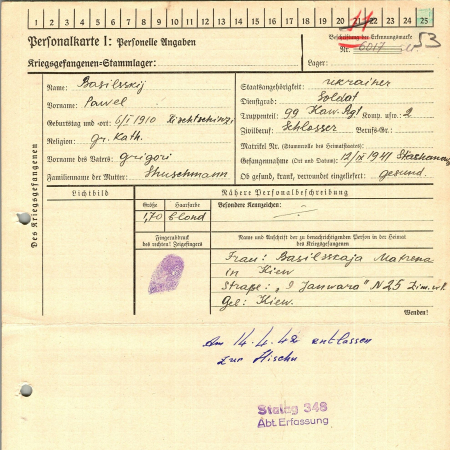 1 2 3 4 5 6 7 8 9 10 11 12 13 14 15 16 17 18 19 20 21 22 23 24 25
Personalkarte I: Personelle Angaben
Beschriftung der Erkennungsmarke
Nr. 6017
53
Kriegsgefangenen-Stammlager:
Lager:
Des Kriegsgefangenen
Name: Basilsskij
Staatsangehörigkeit: ukrainer
Vorname: Pawel
Dienstgrad: Soldat
Truppenteil: 99 Kaw. Rgt Komp. usw.: 2
Geburtstag und -ort: 6/I 1910
Zivilberuf: Schlosser Berufs-Gr.:
Religion: Gr. Kath.
Matrikel Nr. (Stammrolle des Heimatstaates):
Vorname des Vaters: Grigori
Gefangennahme (Ort und Datum): 12/IX 1941
Familienname der Mutter: Shuschmann
Ob gesund, krank, verwundet eingeliefert: gesund.
Lichtbild
Nähere Personalbeschreibung
Größe Haarfarbe
Besondere Kennzeichen:
1,70 blond
Fingerabdruck
des rechten! Zeigefingers
Name und Anschrift der zu benachrichtigenden Person in der Heimat
des Kriegsgefangenen
Frau: Basilsskaja Matrena
in Kiew
Straße: „9 Januara" N 25
Gel: Kiew.
Wenden!
Am 14.4.42 entlassen
zur
Stalag 348
Abt Erfassung